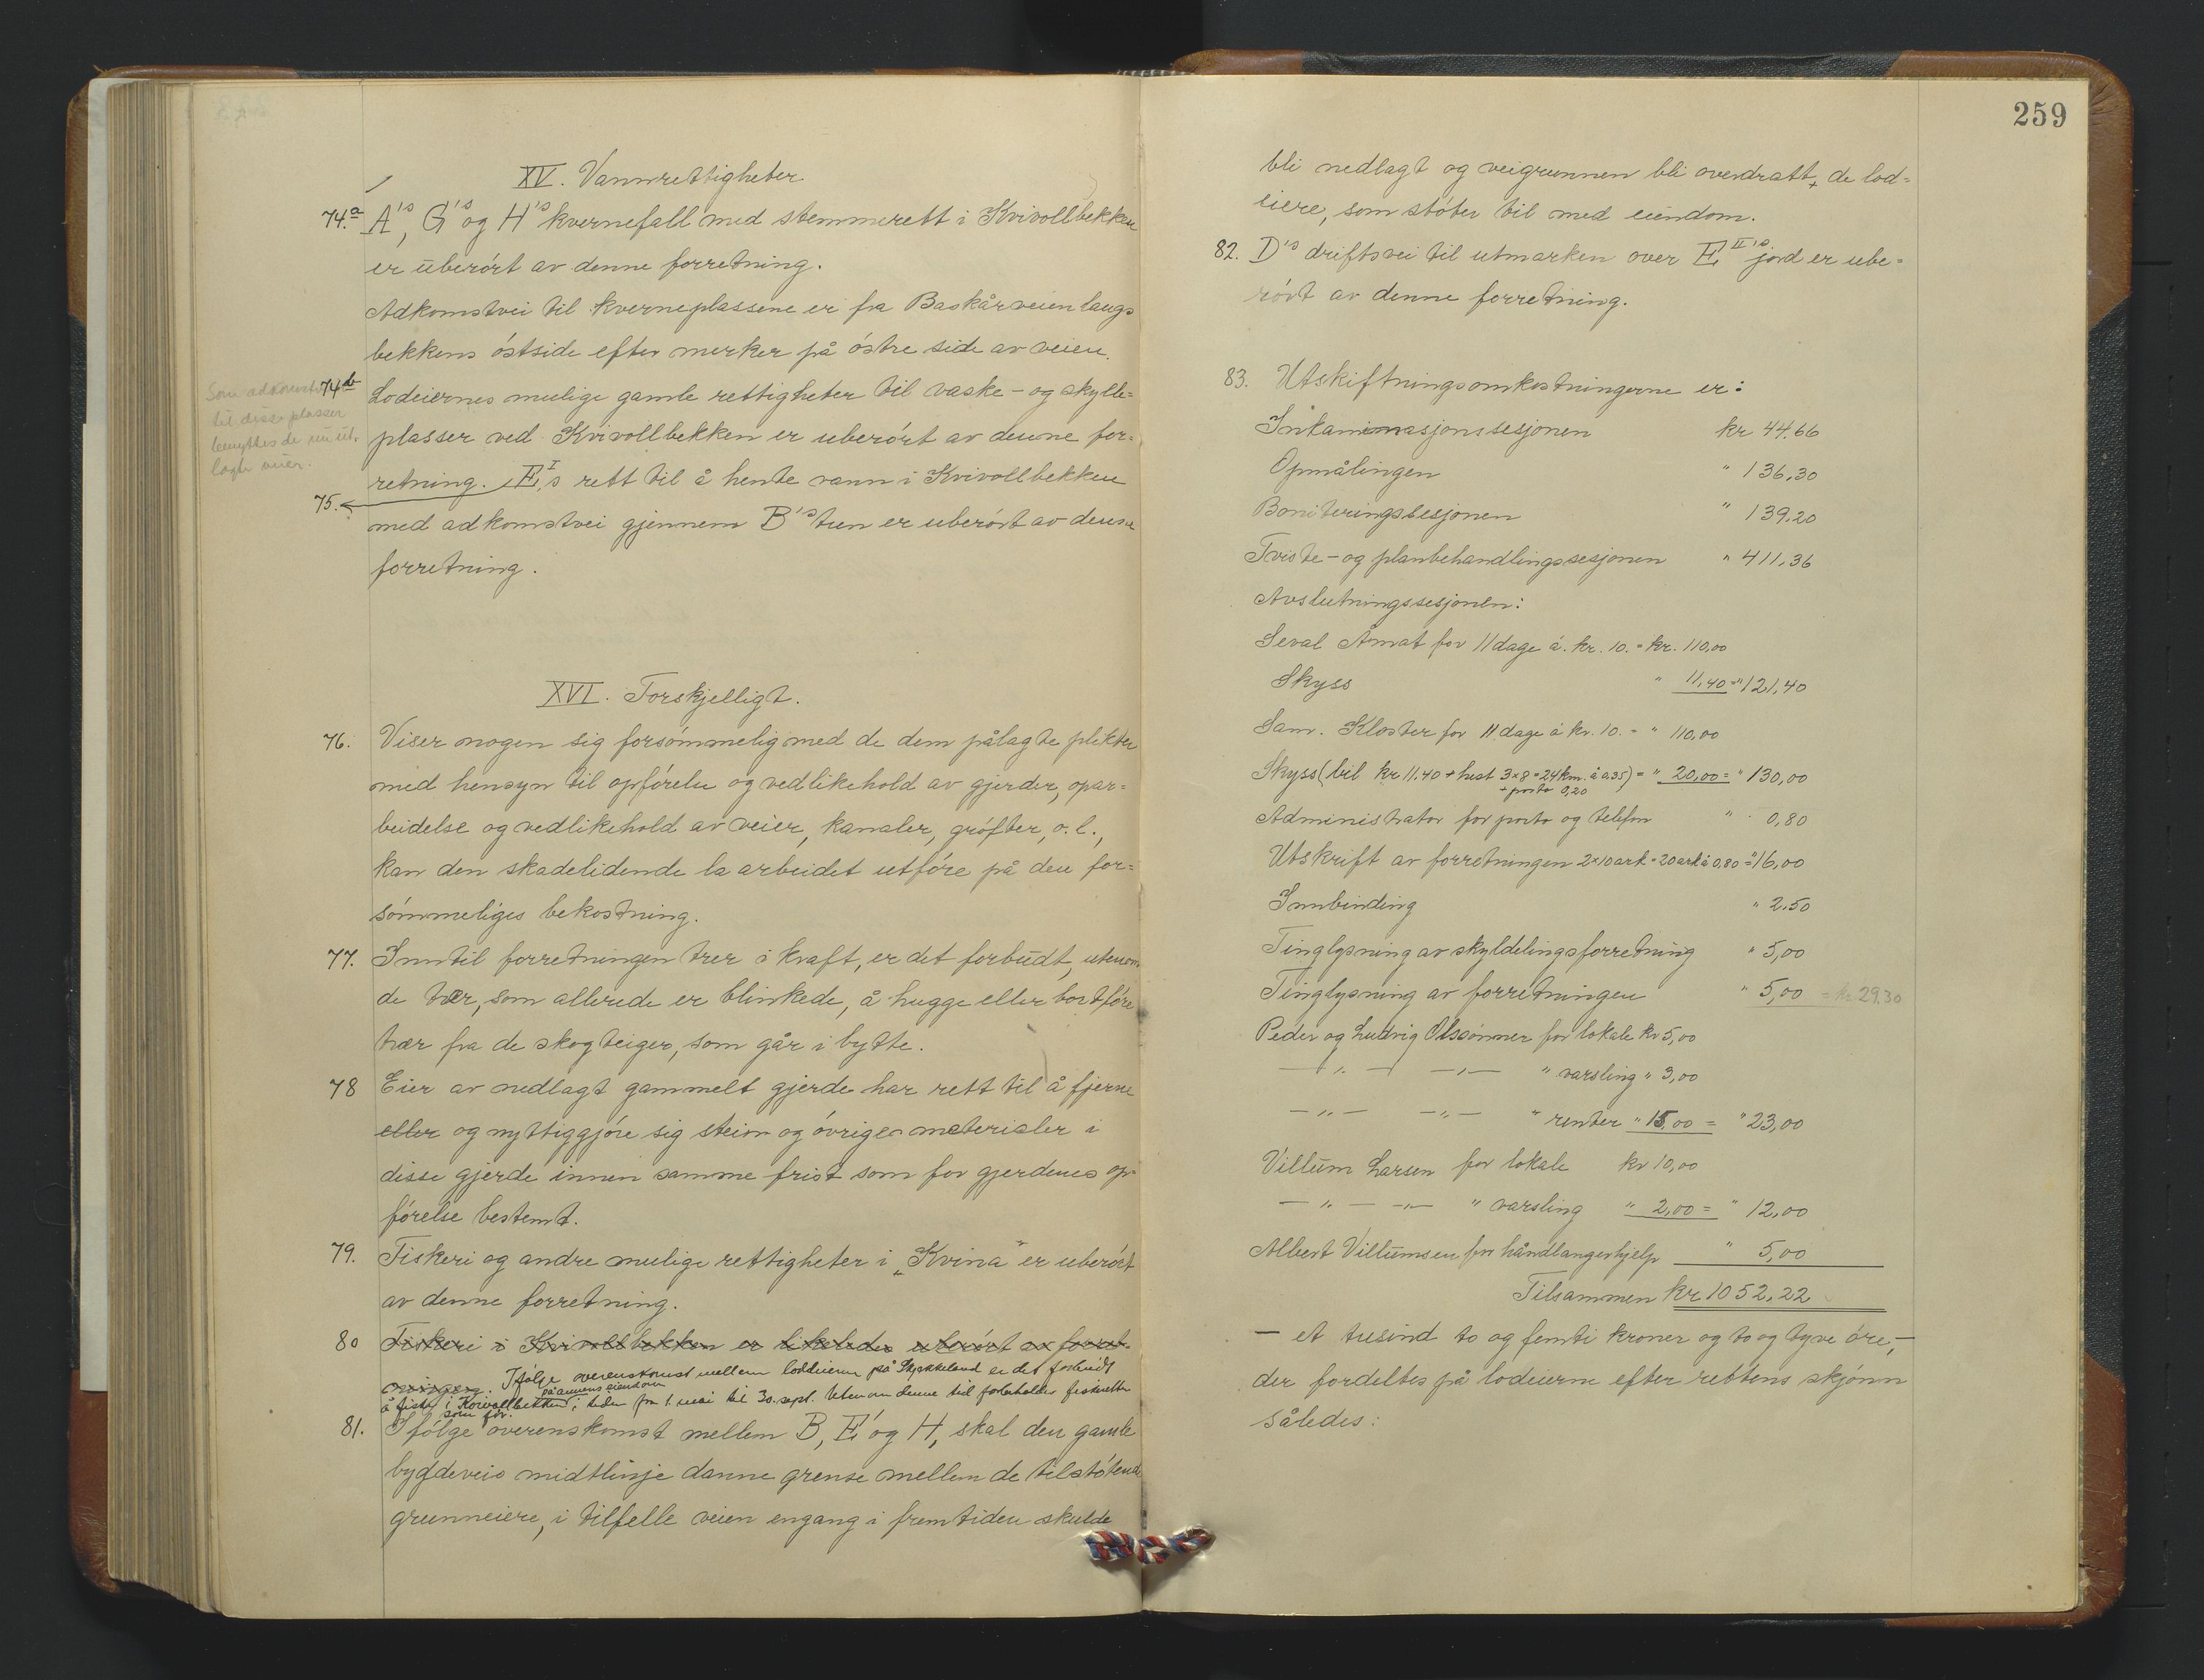 XV. Vannrettigheter
74.a A's, G's og H's kvernefall med stemmerett i Kvivollbekken
er uberørt av denne forretning.
Adkomstvei til kverneplassene er fra Baskårveien langs
bekkens østside efter merker på østre side av veien.
74b Lodeiernes mulige gamle rettigheter til vaske- og skylle=
plasser ved Kvivollbekken er uberørt av denne for=
retning. EI,s rett til å hente vann i Kvivollbekken
75.
med adkomstvei gjennem B's tun er uberørt av denne
forretning.
Som adkomst
til disse plasser
benyttes de nu ut-
lagte veier.
XVI. Forskjelligt.
76. Viser nogen sig forsømmelig med de dem pålagte plikter
med hensyn til opførelse og vedlikehold av gjerder, opar=
beidelse og vedlikehold av veier, kanaler, grøfter, o.l.,
kan den skadelidende la arbeidet utføre på den for=
sømmeliges bekostning.
77. Inntil forretningen trer i kraft, er det forbudt, utenom
de trær, som allerede er blinkede, å hugge eller bortføre
trær fra de skogteiger, som går i bytte.
78 Eier av nedlagt gammelt gjerde har rett til å fjerne
eller og nyttiggjøre sig stein og øvrige materialer i
disse gjerde innen samme frist som for gjerdenes op-
førelse bestemt.
79. Fiskeri og andre mulige rettigheter i „Kvina" er uberørt
av denne forretning.
80 Fiskeri i Kvivollbekken er likeledes uberørt av forret-
ningen. Ifølge overenskomst mellem loddeierne på Skjekkeland er det forbudt
på annens eiendom
å fiske i Kvivollbekken i tiden fra 1. mai til 30. sept. Utenom denne tid forbeholdes fiskeretten
som før.
81. Ifølge overenskomst mellem B, E' og H, skal den gamle
bygdeveis midtlinje danne grense mellem de tilstøtende
grunneiere, i tilfelle veien engang i fremtiden skulde
259
bli nedlagt og veigrunnen bli overdratt, de lod=
eiere, som støter til med eiendom.
82. D's driftsvei til utmarken over EII's jord er ube=
rørt av denne forretning.
83. Utskiftningsomkostningerne er:
Inkaminasjonssesjonen kr 44.66
Opmålingen " 136,30
Boniteringssesjonen " 139.20
Tviste- og planbehandlingssesjonen " 411,36
Avslutningssesjonen:
Seval Åmot for 11 dage á. kr. 10. = kr. 110,00
Skyss " 11,40 = " 121,40
Sam. Kloster for 11 dage á kr. 10. = " 110,00
Skyss (bil kr 11.40 + hest 3×8=24 km. á 0.35) = " 20,00 = " 130,00
+ porto 0,20
Administrator for porto og telefon " 0,80
Utskrift av forretningen 2×10 ark = 20 ark á 0,80 = " 16,00
Innbinding " 2.50
Tinglysning av skyldelingsforretning " 5,00
Tinglysning av forretningen " 5,00 = kr 29.30
Peder og Ludvig Olssønner for lokale kr 5,00
— " — — " — " varsling " 3,00
— " — — " — " renter " 15,00 = " 23,00
Villum Larsen for lokale kr 10,00
— " — — " — " varsling " 2,00 = " 12,00
Albert Villumsen for håndlangerhjelp " 5,00
Tilsammen kr 1052,22
— et tusind to og femti kroner og to og tyve øre, —
der fordeltes på lodeierne efter rettens skjønn
således: